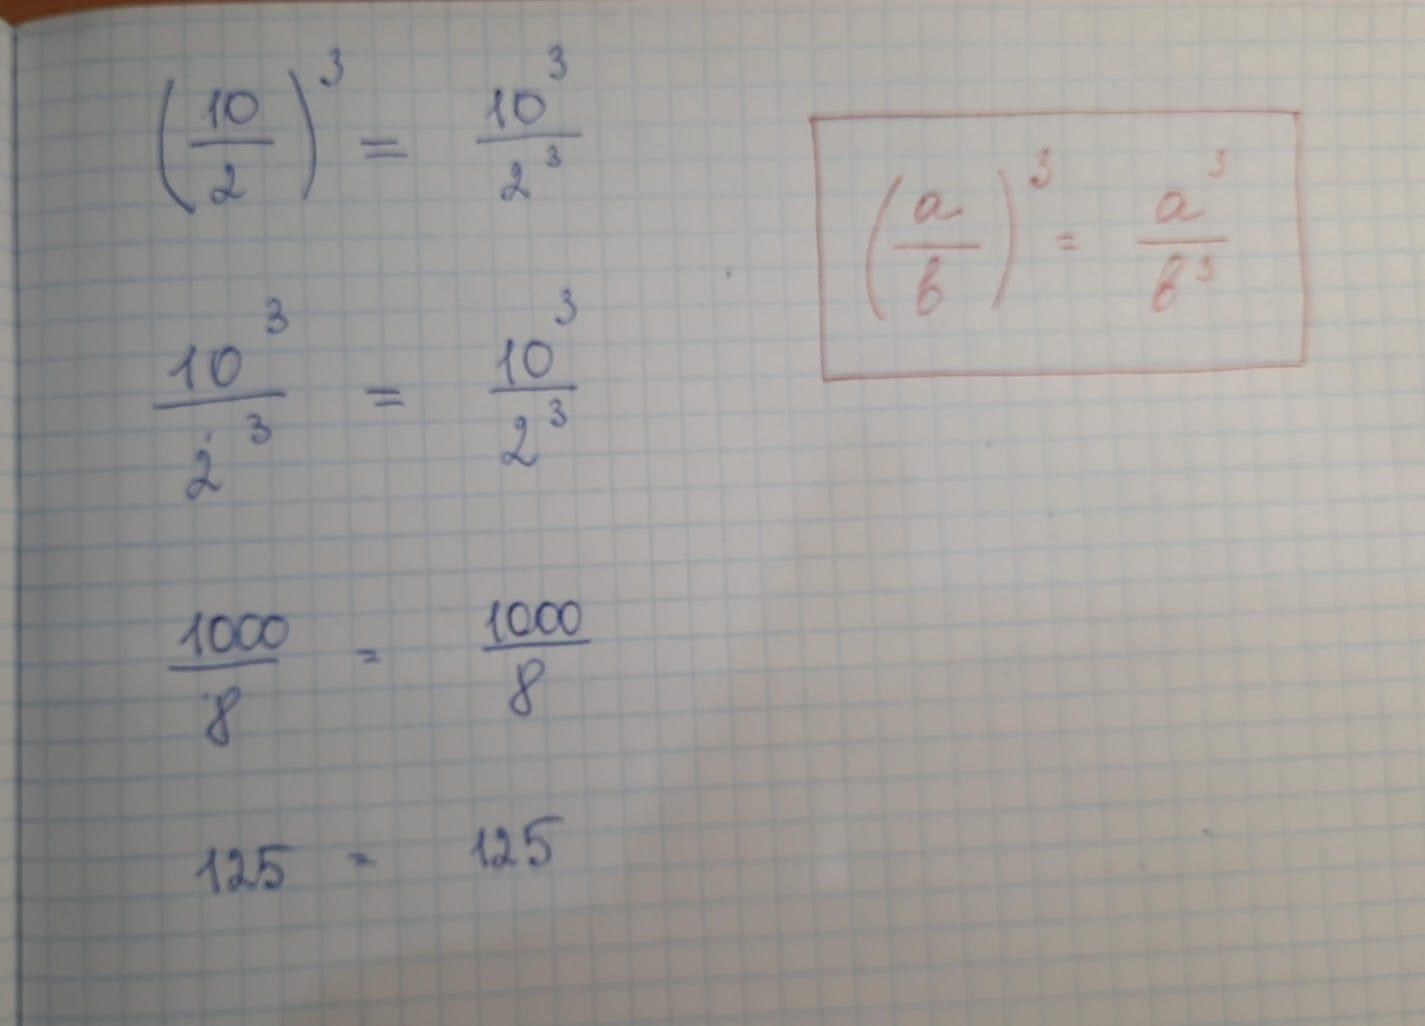 (10/2)³ = 10³/2³
(a/b)³ = a³/b³
10³/2³ = 10³/2³
1000/8 = 1000/8
125 = 125